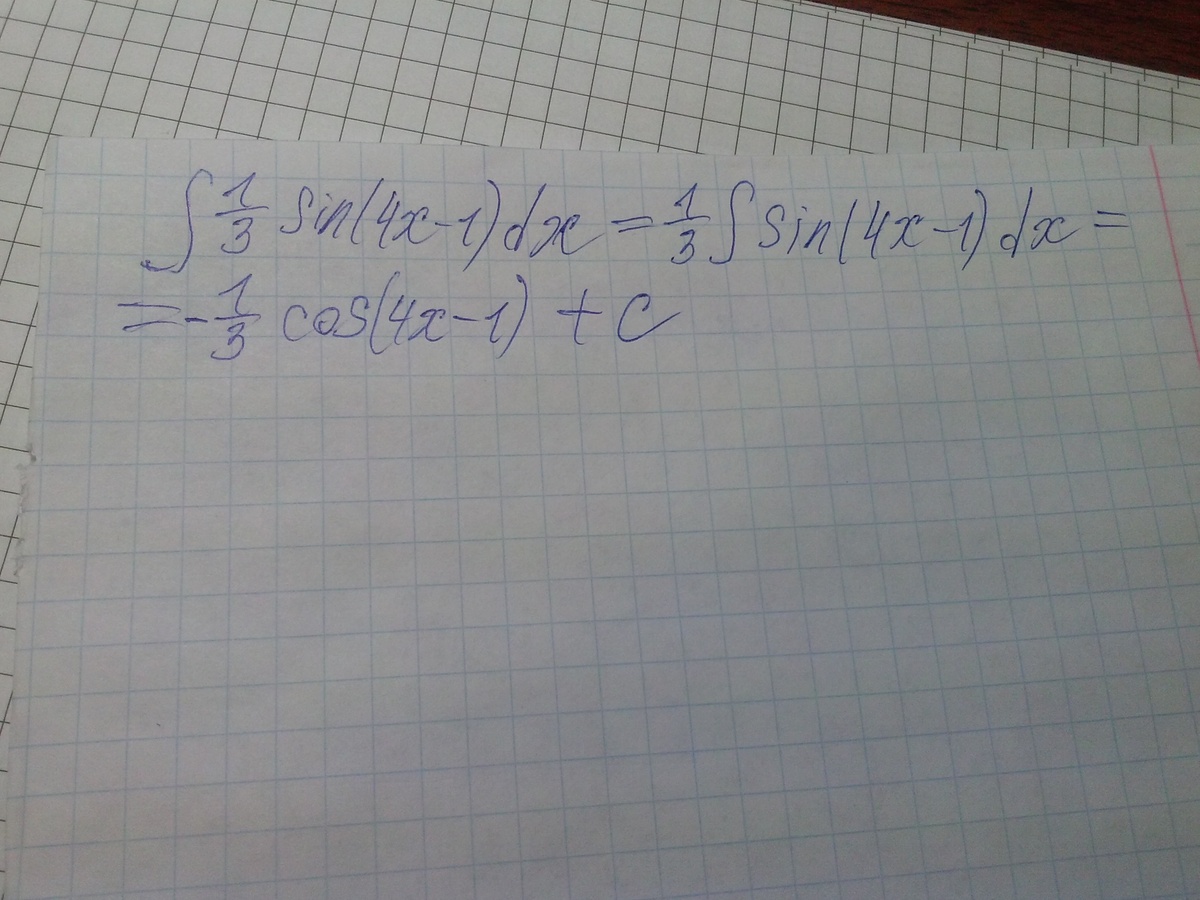 ∫ 1/3 sin(4x-1)dx = 1/3 ∫ sin(4x-1)dx =
= -1/3 cos(4x-1) + C